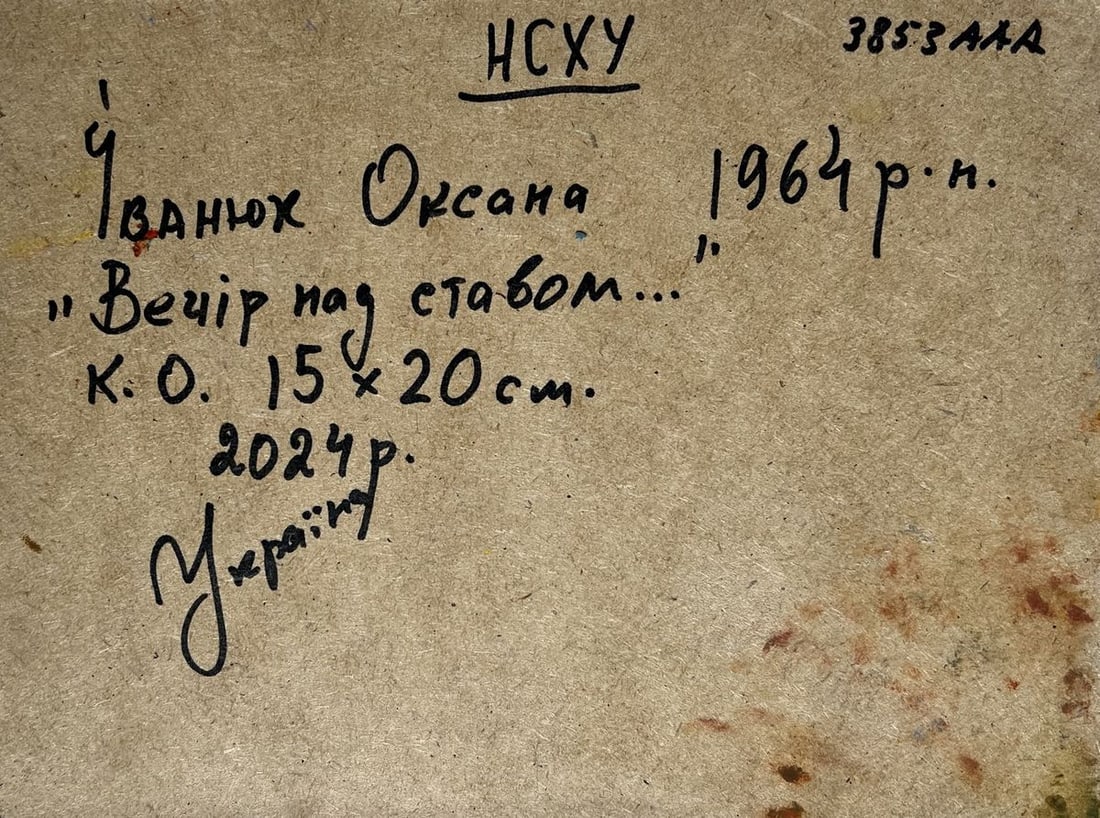 НСХУ
3853 ААА
Іванюк Оксана 1964 р. н.
"Вечір над ставом..."
К. О. 15 x 20 см.
2024 р.
Україна